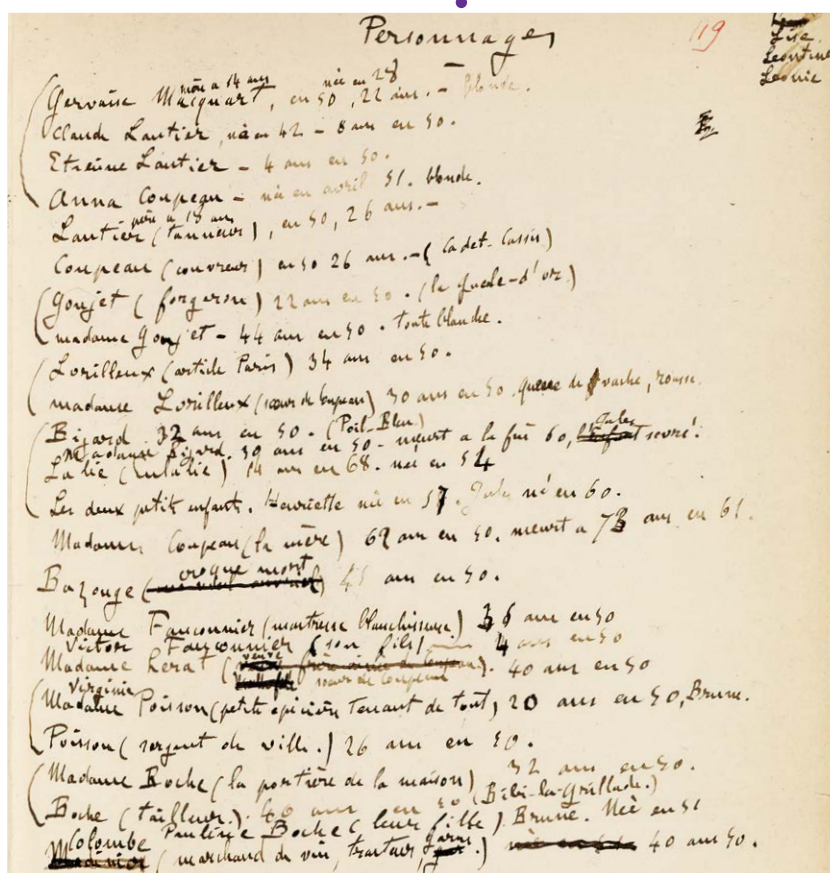 Personnages
119
Lise
Leontine
Leonie
Gervaise Macquart, mère à 14 ans, née en 28, en 50, 22 ans. - blonde.
Claude Lantier, né en 42 - 8 ans en 50.
Etienne Lantier - 4 ans en 50.
Anna Coupeau - née en avril 51. blonde.
Lantier (tanneur) père a 18 ans, en 50, 26 ans. -
Coupeau (couvreur) en 50 26 ans. - (Cadet-Cassis)
Goujet (forgeron) 22 ans en 50. (la gueule-d'or)
madame Goujet - 44 ans en 50. toute blanche.
Lorilleux (article Paris) 34 ans en 50.
madame Lorilleux (sœur de Coupeau) 30 ans en 50. queue de vache, rousse.
Bijard. 32 ans en 50. (Poil-Bleu)
Madame Bijard. 30 ans en 50 - meurt a la fin 60, Jules sevré.
Lalie (Eulalie) 14 ans en 68. née en 54
Les deux petits enfants. Henriette née en 57. Jules né en 60.
Madame Coupeau (la mère) 62 ans en 50. meurt a 73 ans en 61.
Bazouge (croque mort) 45 ans en 50.
Madame Fauconnier (maitresse blanchisseuse.) 36 ans en 50
Victor Fauconnier (son fils) 4 ans en 50
Madame Lerat (veuve sœur de Coupeau). 40 ans en 50
Virginie
Madame Poisson (petite épicière tenant de tout) 20 ans en 50, Brune.
Poisson (sergent de ville.) 26 ans en 50.
Madame Boche (la portière de la maison) 32 ans en 50.
Boche (tailleur.) 40 ans en 50 (Bibi-la-Grillade.)
Pauline Boche (leur fille) Brune. Née en 51
Colombe (marchand de vin, traiteur,) 40 ans 50.